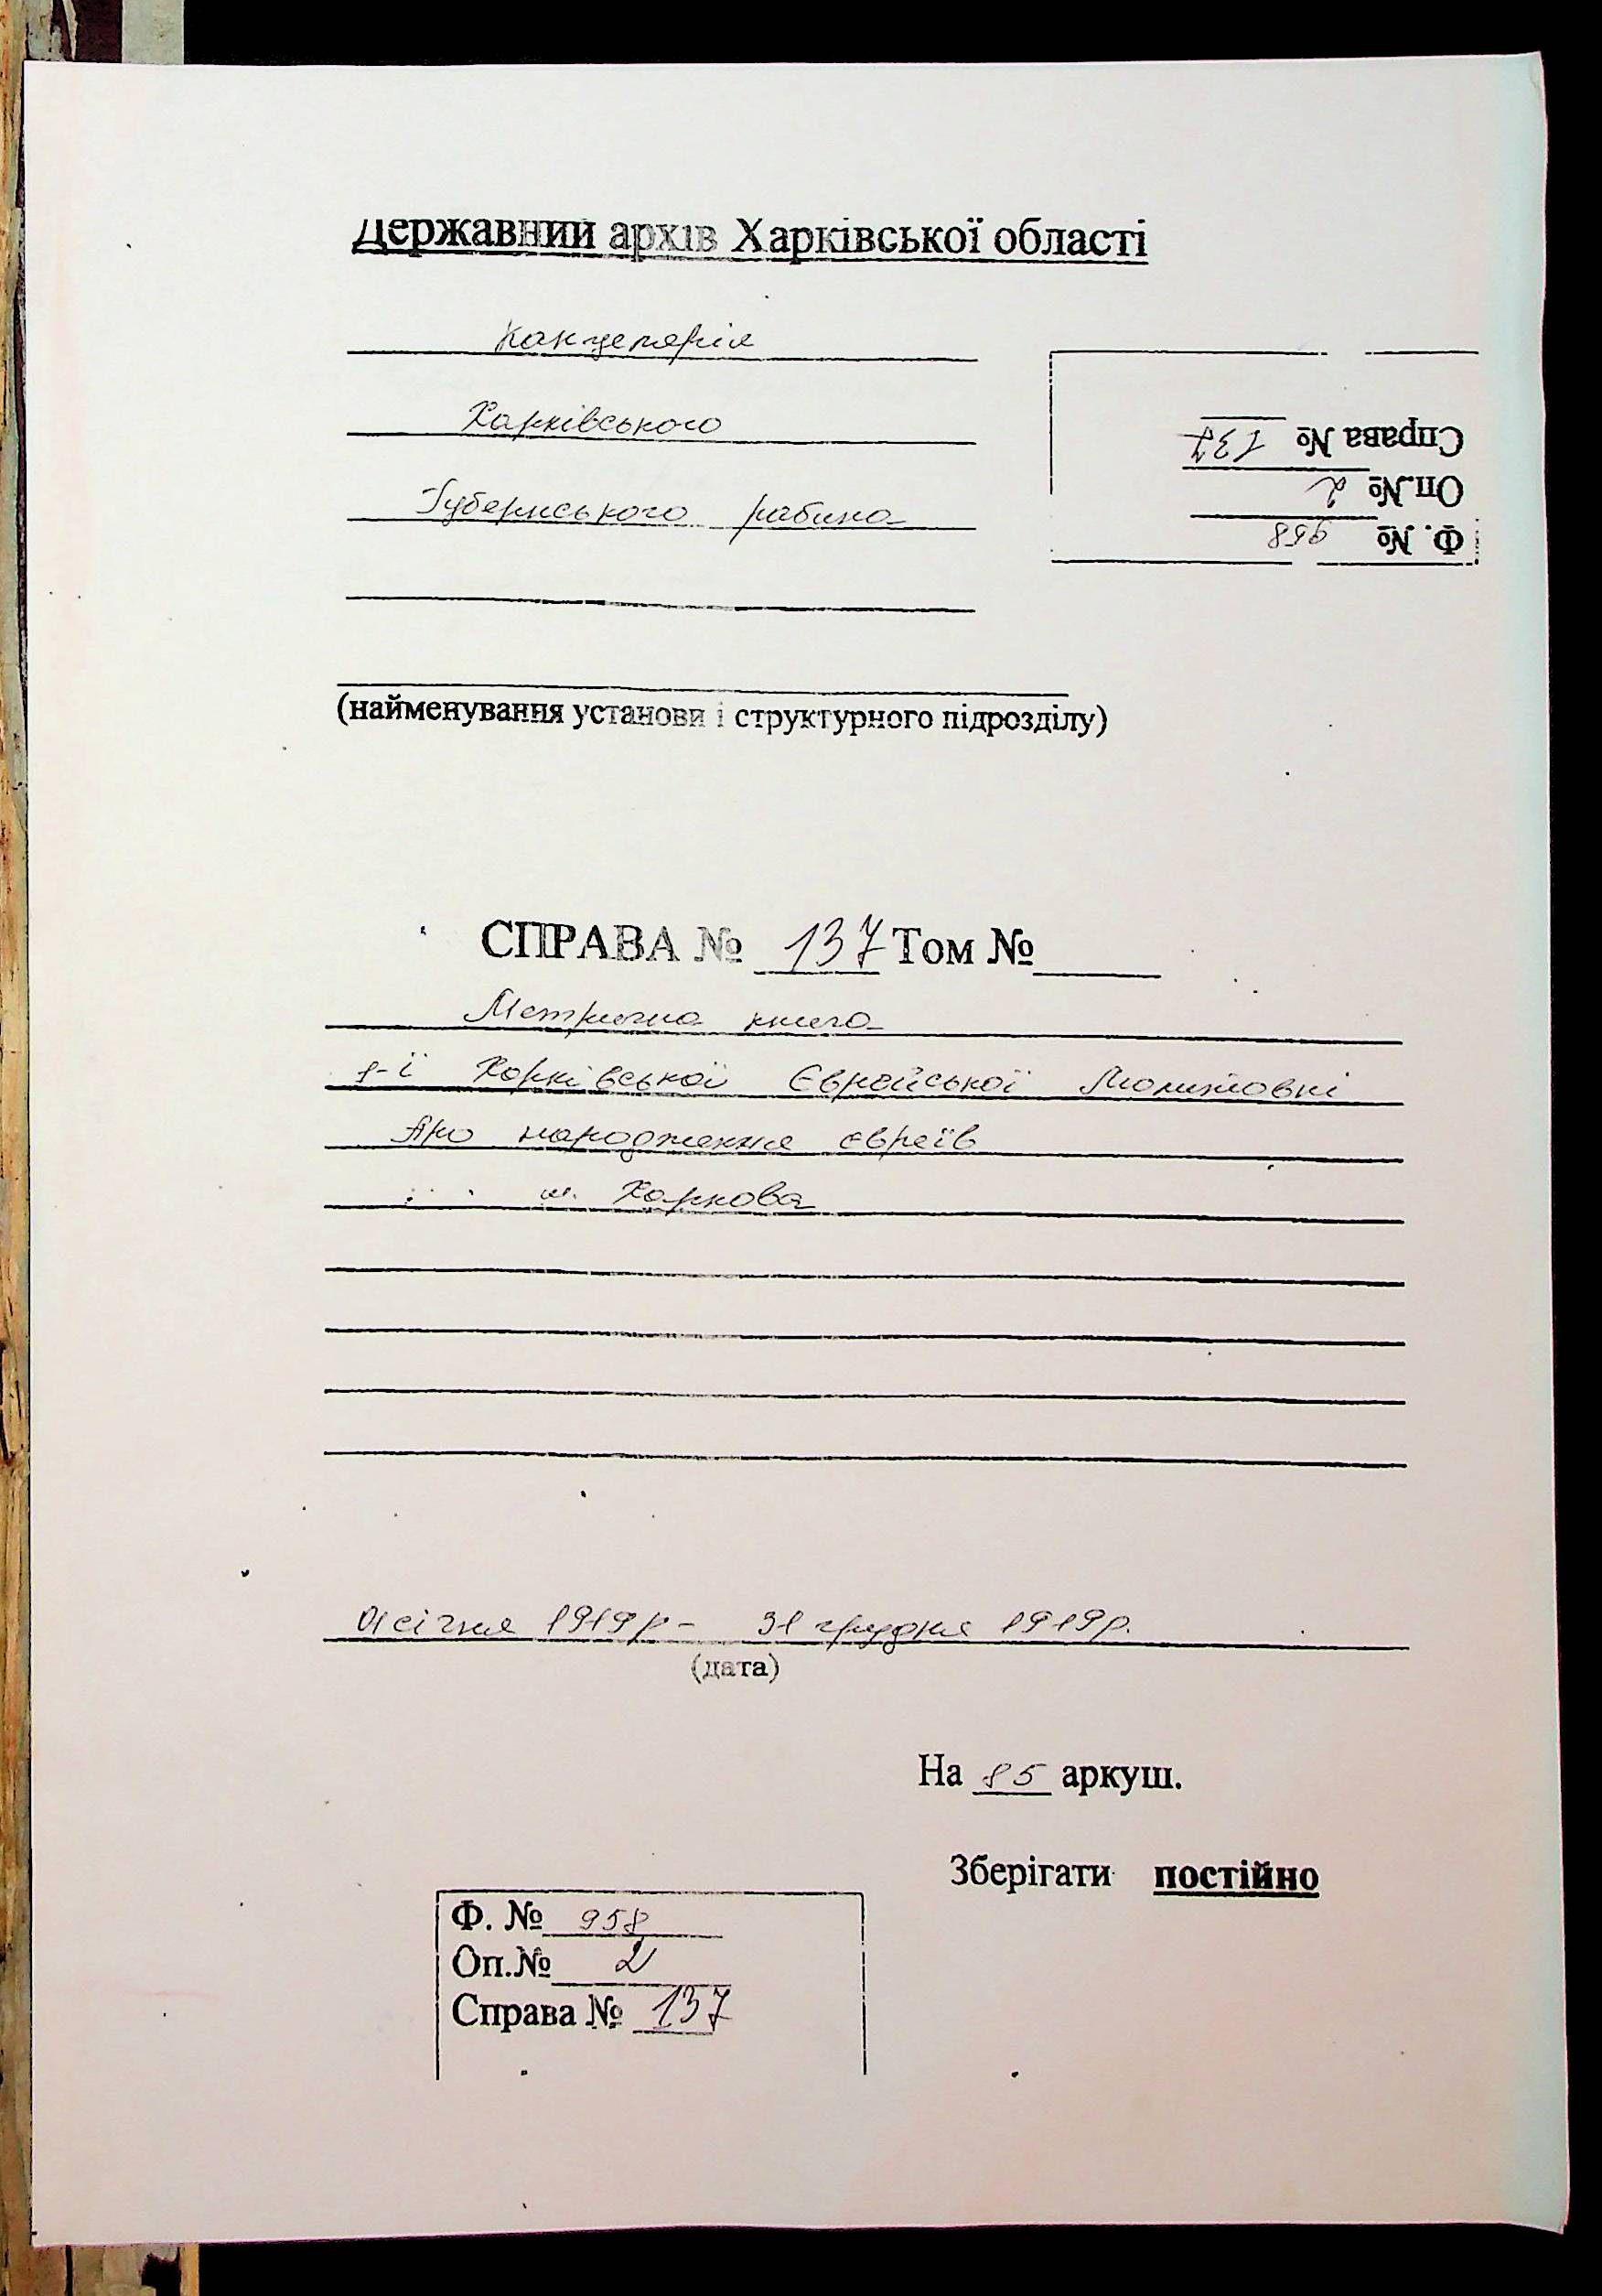 Державний архів Харківської області
Канцелярія
Харківського
Губернського рабина
Справа № 137
Оп.№ 2
Ф. № 958
(найменування установи і структурного підрозділу)
СПРАВА № 137 Том №
Метрична книга
Харківської Єврейської Молитовні
про народження євреїв
м. Харкова
01 січня 1919 р - 31 грудня 1919 р.
(дата)
На 85 аркуш.
Зберігати постійно
Ф. № 958
Оп.№ 2
Справа № 137